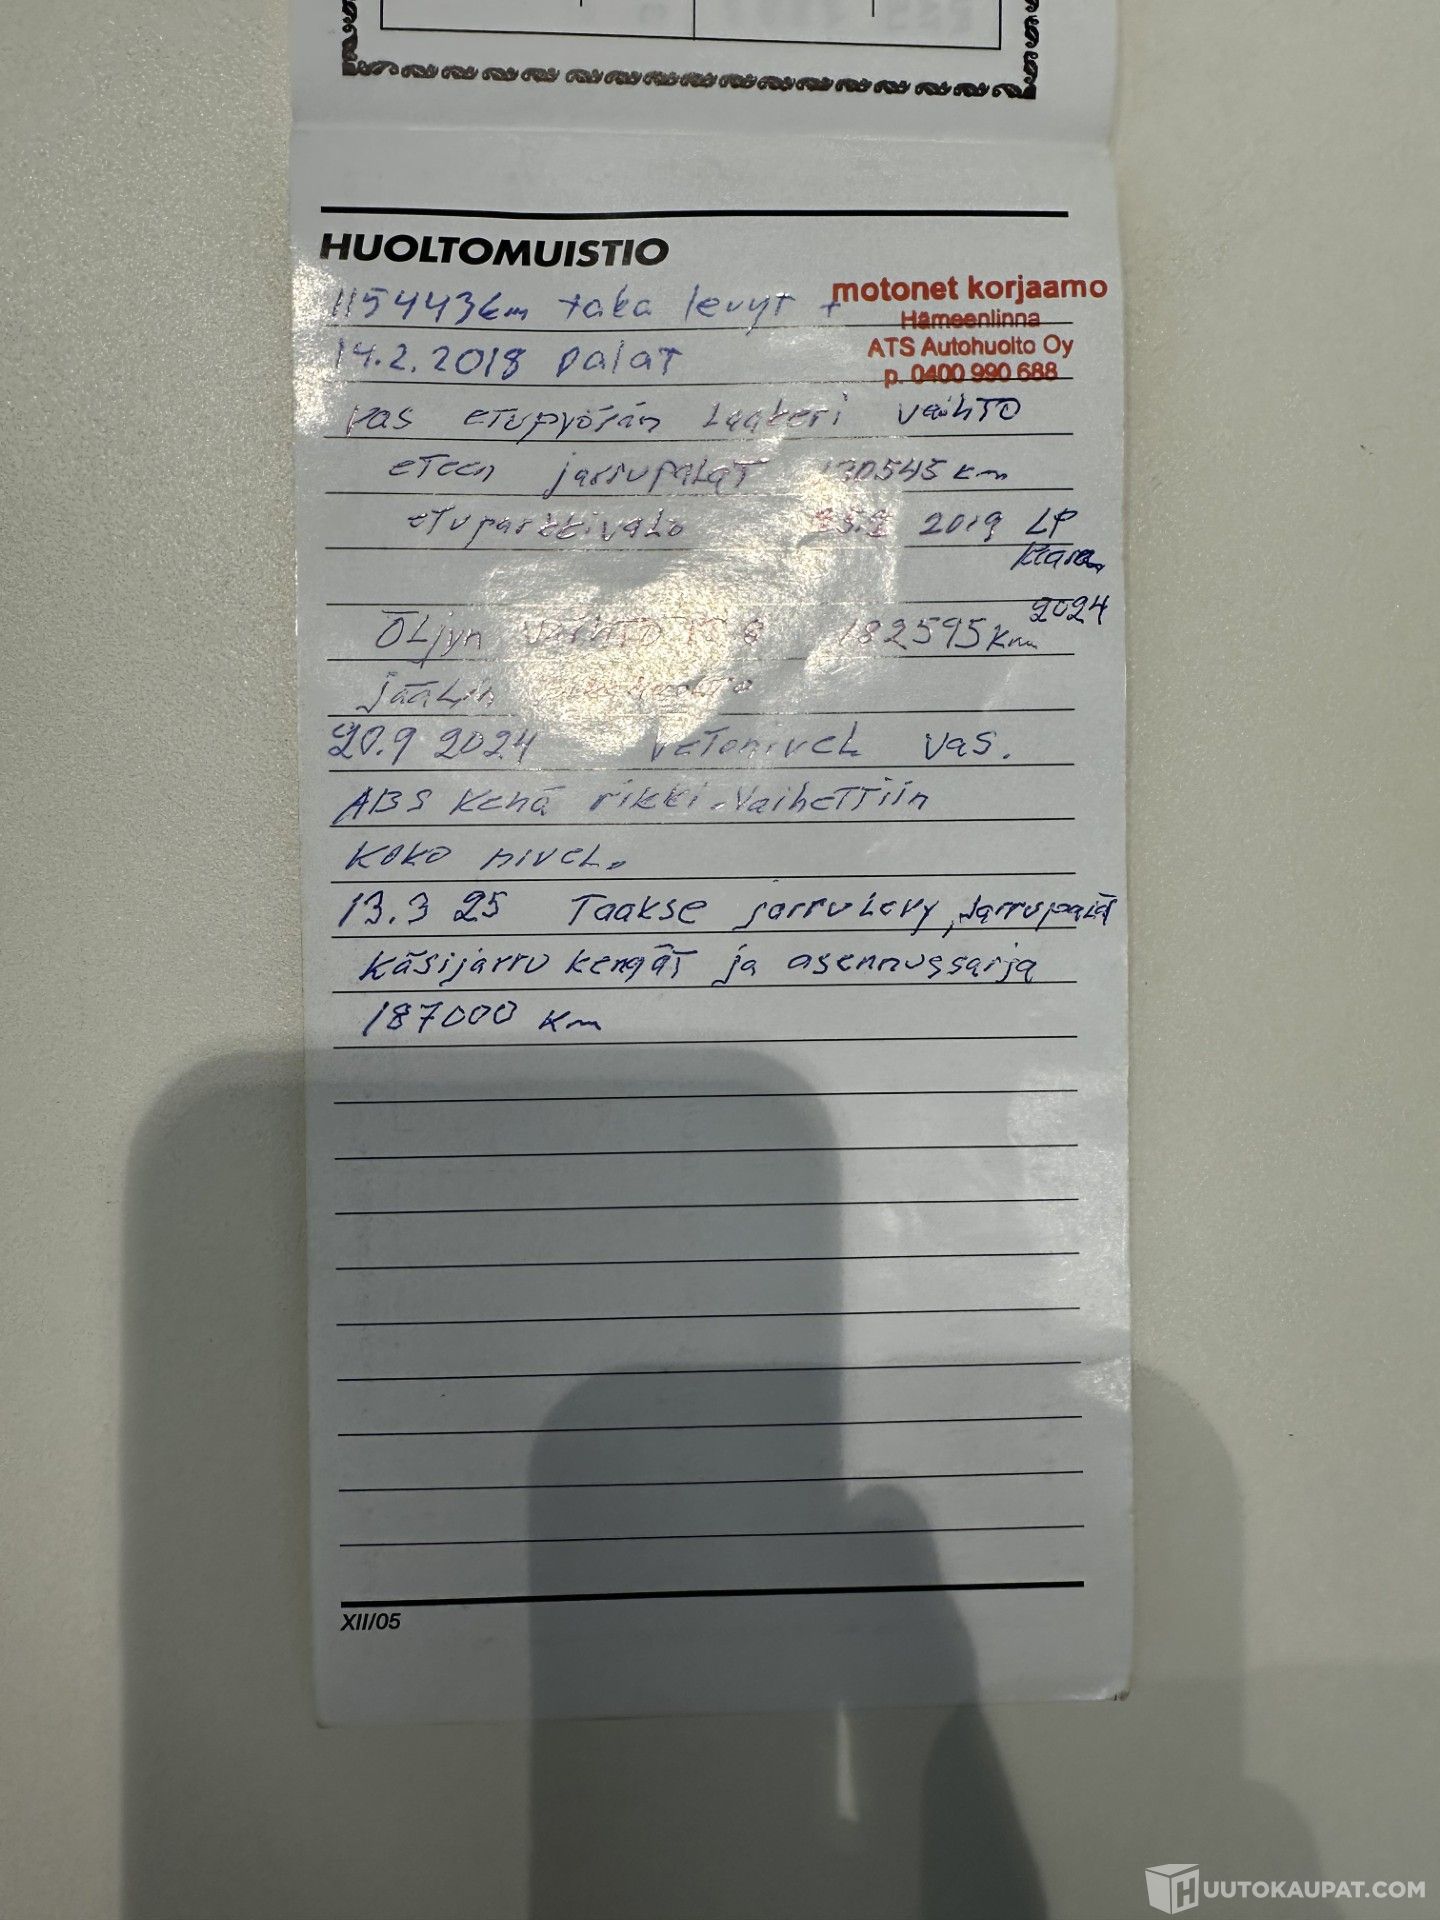 HUOLTOMUISTIO
115443km taka levyt +
motonet korjaamo
Hämeenlinna
ATS Autohuolto Oy
p. 0400 990 688
14.2.2018 palat
Vas etupyörän Laakeri vaihto
eteen jarrupalat 130545 km
etuparkkivalo 2019 LP
2024
ÖLjyn 182595 Km
jääLin
20.9 2024 Vetonivel vas.
ABS Kehä rikki. Vaihettiin
Koko nivel.
13.3 25 Taakse jarruLevy, Jarrupalat
Käsijarru kengät ja asennussarja
187000 Km
XII/05
HUUTOKAUPAT.COM